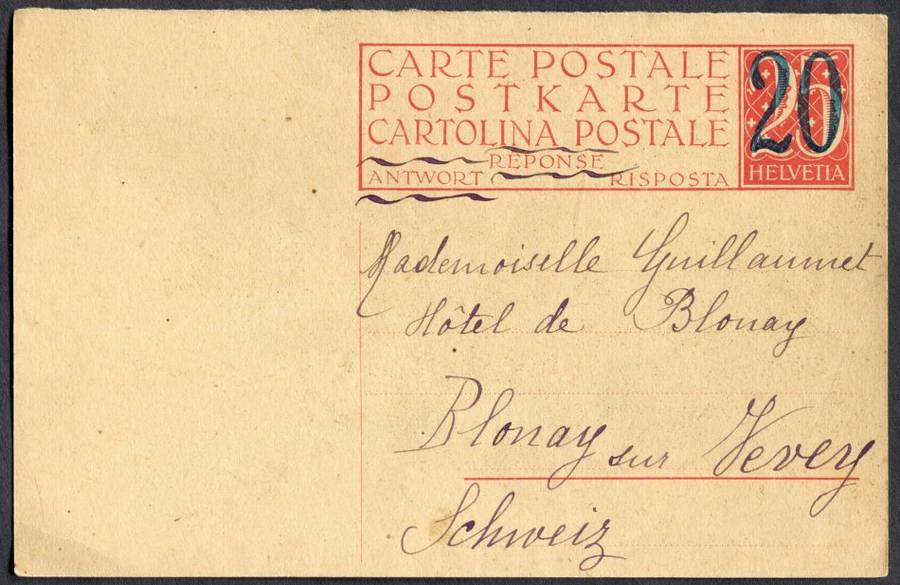 CARTE POSTALE
POSTKARTE
CARTOLINA POSTALE
RÉPONSE
ANTWORT RISPOSTA
20
25
HELVETIA
Mademoiselle Guillaumet
Hôtel de Blonay
Blonay sur Vevey
Schweiz